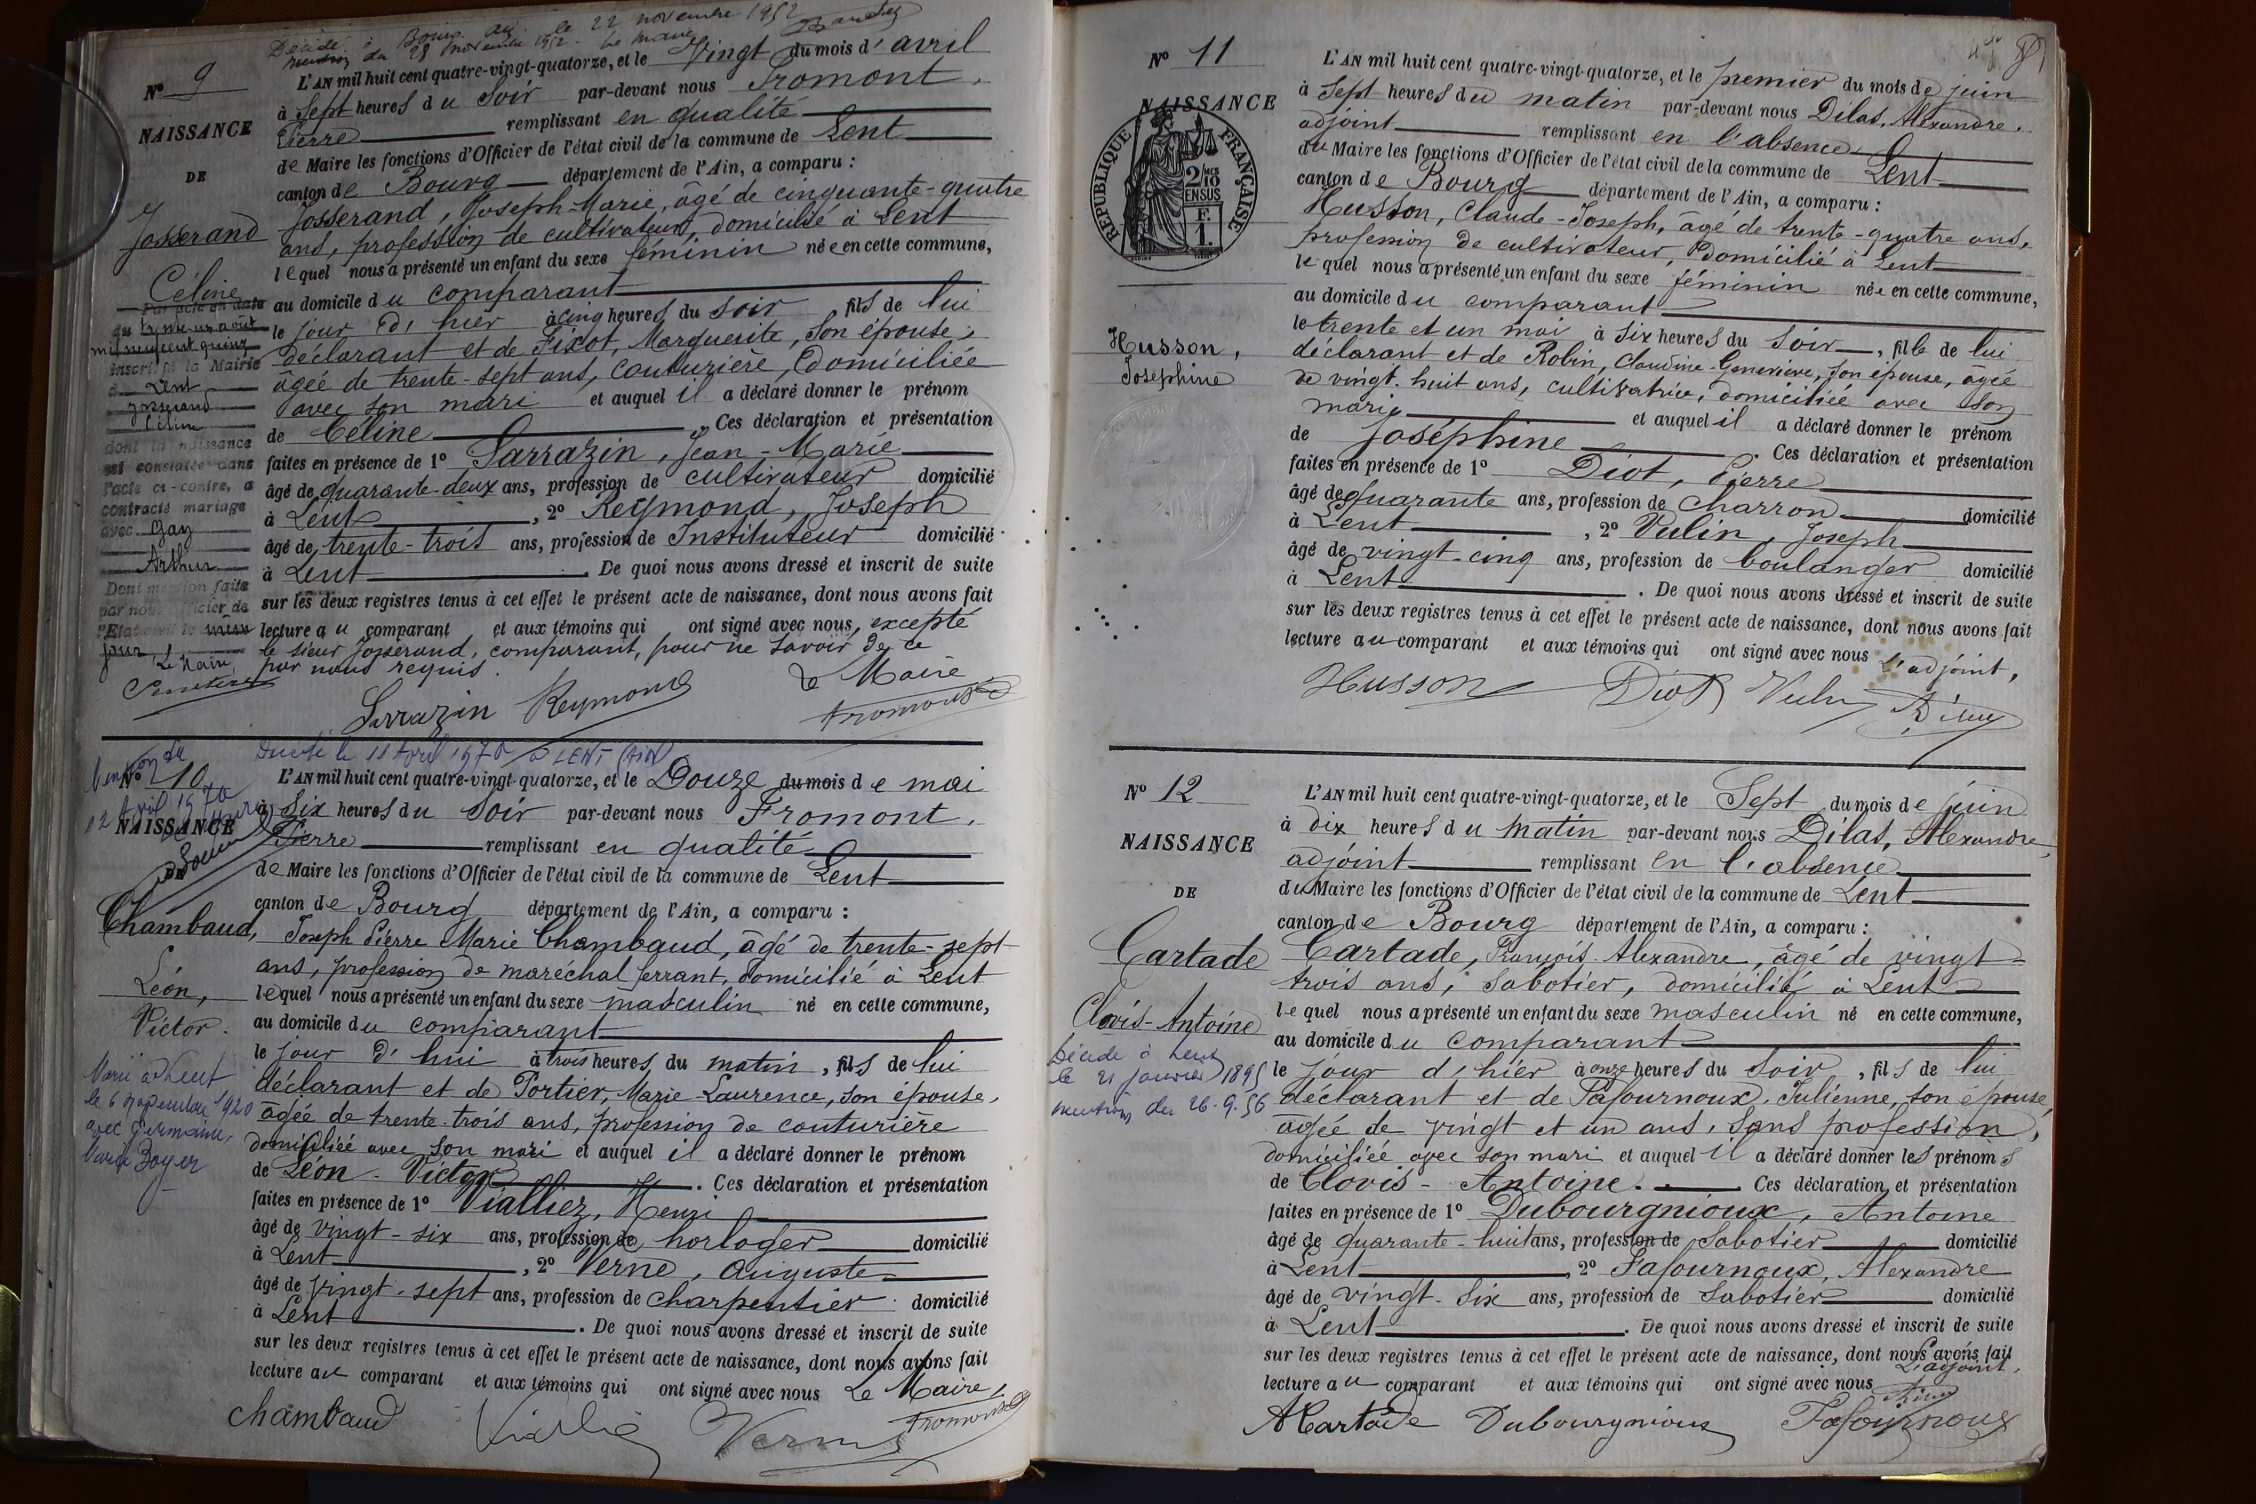 Décédé à Bourg le 22 novembre 1952
mention du 28 novembre 1952. Le Maire
N° 9
NAISSANCE
DE
Josserand
Céline
Par acte en date
du trente un août
mil neuf cent quinze
inscrit à la Mairie
à Lent
Josserand
Céline
dont la naissance
est constatée dans
l'acte ci-contre, a
contracté mariage
avec Gay
Arthur
Dont mention faite
par nous Officier de
l'Etat civil le même
jour
Le Maire,
L'AN mil huit cent quatre-vingt-quatorze, et le Vingt du mois d'avril
à Sept heures du Soir par-devant nous Fromont,
Pierre remplissant en qualité
de Maire les fonctions d'Officier de l'état civil de la commune de Lent
canton de Bourg département de l'Ain, a comparu :
Josserand, Joseph-Marie, âgé de cinquante-quatre
ans, profession de cultivateur, domicilié à Lent
lequel nous a présenté un enfant du sexe féminin née en cette commune,
au domicile du comparant
le jour d'hier à cinq heures du soir fils de lui
déclarant et de Fixot, Marguerite, son épouse,
âgée de trente-sept ans, couturière, domiciliée
avec son mari et auquel il a déclaré donner le prénom
de Céline. Ces déclaration et présentation
faites en présence de 1° Sarrazin, Jean-Marie
âgé de quarante-deux ans, profession de cultivateur domicilié
à Lent, 2° Reymond, Joseph
âgé de trente-trois ans, profession de Instituteur domicilié
à Lent. De quoi nous avons dressé et inscrit de suite
sur les deux registres tenus à cet effet le présent acte de naissance, dont nous avons fait
lecture au comparant et aux témoins qui ont signé avec nous, excepté
le sieur Josserand, comparant, pour ne savoir de ce
par nous requis.
Le Maire
Sarrazin Reymond Fromont
Décédé le 11 Avril 1970 à LENT (AIN)
Mention du
12 Avril 1970
N° 10
NAISSANCE
DE
Chambaud,
Léon,
Victor.
Marié à Lent
le 6 novembre 1920
avec Germaine,
Maria Boyer
L'AN mil huit cent quatre-vingt-quatorze, et le Douze du mois de mai
à Six heures du Soir par-devant nous Fromont,
Pierre remplissant en qualité
de Maire les fonctions d'Officier de l'état civil de la commune de Lent
canton de Bourg département de l'Ain, a comparu :
Joseph Pierre Marie Chambaud, âgé de trente-sept
ans, profession de maréchal ferrant, domicilié à Lent
lequel nous a présenté un enfant du sexe masculin né en cette commune,
au domicile du comparant
le jour d'hui à trois heures du matin, fils de lui
déclarant et de Portier, Marie-Laurence, son épouse,
âgée de trente-trois ans, profession de couturière
domiciliée avec son mari et auquel il a déclaré donner le prénom
de Léon-Victor. Ces déclaration et présentation
faites en présence de 1° Vialliez, Henri
âgé de vingt-six ans, profession de horloger domicilié
à Lent, 2° Verne, Auguste
âgé de vingt-sept ans, profession de charpentier domicilié
à Lent. De quoi nous avons dressé et inscrit de suite
sur les deux registres tenus à cet effet le présent acte de naissance, dont nous avons fait
lecture au comparant et aux témoins qui ont signé avec nous Le Maire,
chambaud Verne Fromont
N° 11
NAISSANCE
REPUBLIQUE FRANÇAISE
2/10 EN SUS
F. 1.
Husson,
Joséphine
L'AN mil huit cent quatre-vingt-quatorze, et le premier du mois de juin
à Sept heures du matin par-devant nous Dilas, Alexandre,
adjoint remplissant en l'absence
du Maire les fonctions d'Officier de l'état civil de la commune de Lent
canton de Bourg département de l'Ain, a comparu :
Husson, Claude-Joseph, âgé de trente-quatre ans,
profession de cultivateur, domicilié à Lent
lequel nous a présenté un enfant du sexe féminin née en cette commune,
au domicile du comparant
le trente et un mai à Six heures du Soir, fille de lui
déclarant et de Robin, Claudine-Geneviève, son épouse, âgée
de vingt-huit ans, cultivatrice, domiciliée avec son
mari, et auquel il a déclaré donner le prénom
de Joséphine. Ces déclaration et présentation
faites en présence de 1° Diot, Pierre
âgé de quarante ans, profession de Charron domicilié
à Lent, 2° Vulin, Joseph
âgé de vingt-cinq ans, profession de boulanger domicilié
à Lent. De quoi nous avons dressé et inscrit de suite
sur les deux registres tenus à cet effet le présent acte de naissance, dont nous avons fait
lecture au comparant et aux témoins qui ont signé avec nous L'adjoint,
Husson Diot Vulin Dilas
N° 12
NAISSANCE
DE
Cartade
Clovis-Antoine
Décédé à Lent
le 21 janvier 1895
mention du 26.9.56
L'AN mil huit cent quatre-vingt-quatorze, et le Sept du mois de juin
à dix heures du matin par-devant nous Dilas, Alexandre,
adjoint remplissant en l'absence
du Maire les fonctions d'Officier de l'état civil de la commune de Lent
canton de Bourg département de l'Ain, a comparu :
Cartade, François-Alexandre, âgé de vingt-
trois ans, Sabotier, domicilié à Lent
lequel nous a présenté un enfant du sexe masculin né en cette commune,
au domicile du comparant
le jour d'hier à onze heures du Soir, fils de lui
déclarant et de Pafournoux, Julienne, son épouse,
âgée de vingt et un ans, sans profession,
domiciliée avec son mari et auquel il a déclaré donner les prénoms
de Clovis-Antoine. Ces déclaration et présentation
faites en présence de 1° Dubourgnioux, Antoine
âgé de quarante-huit ans, profession de Sabotier domicilié
à Lent, 2° Pafournoux, Alexandre
âgé de vingt-six ans, profession de Sabotier domicilié
à Lent. De quoi nous avons dressé et inscrit de suite
sur les deux registres tenus à cet effet le présent acte de naissance, dont nous avons fait
lecture au comparant et aux témoins qui ont signé avec nous L'adjoint,
Dilas
A Cartade Dubourgnioux Pafournoux